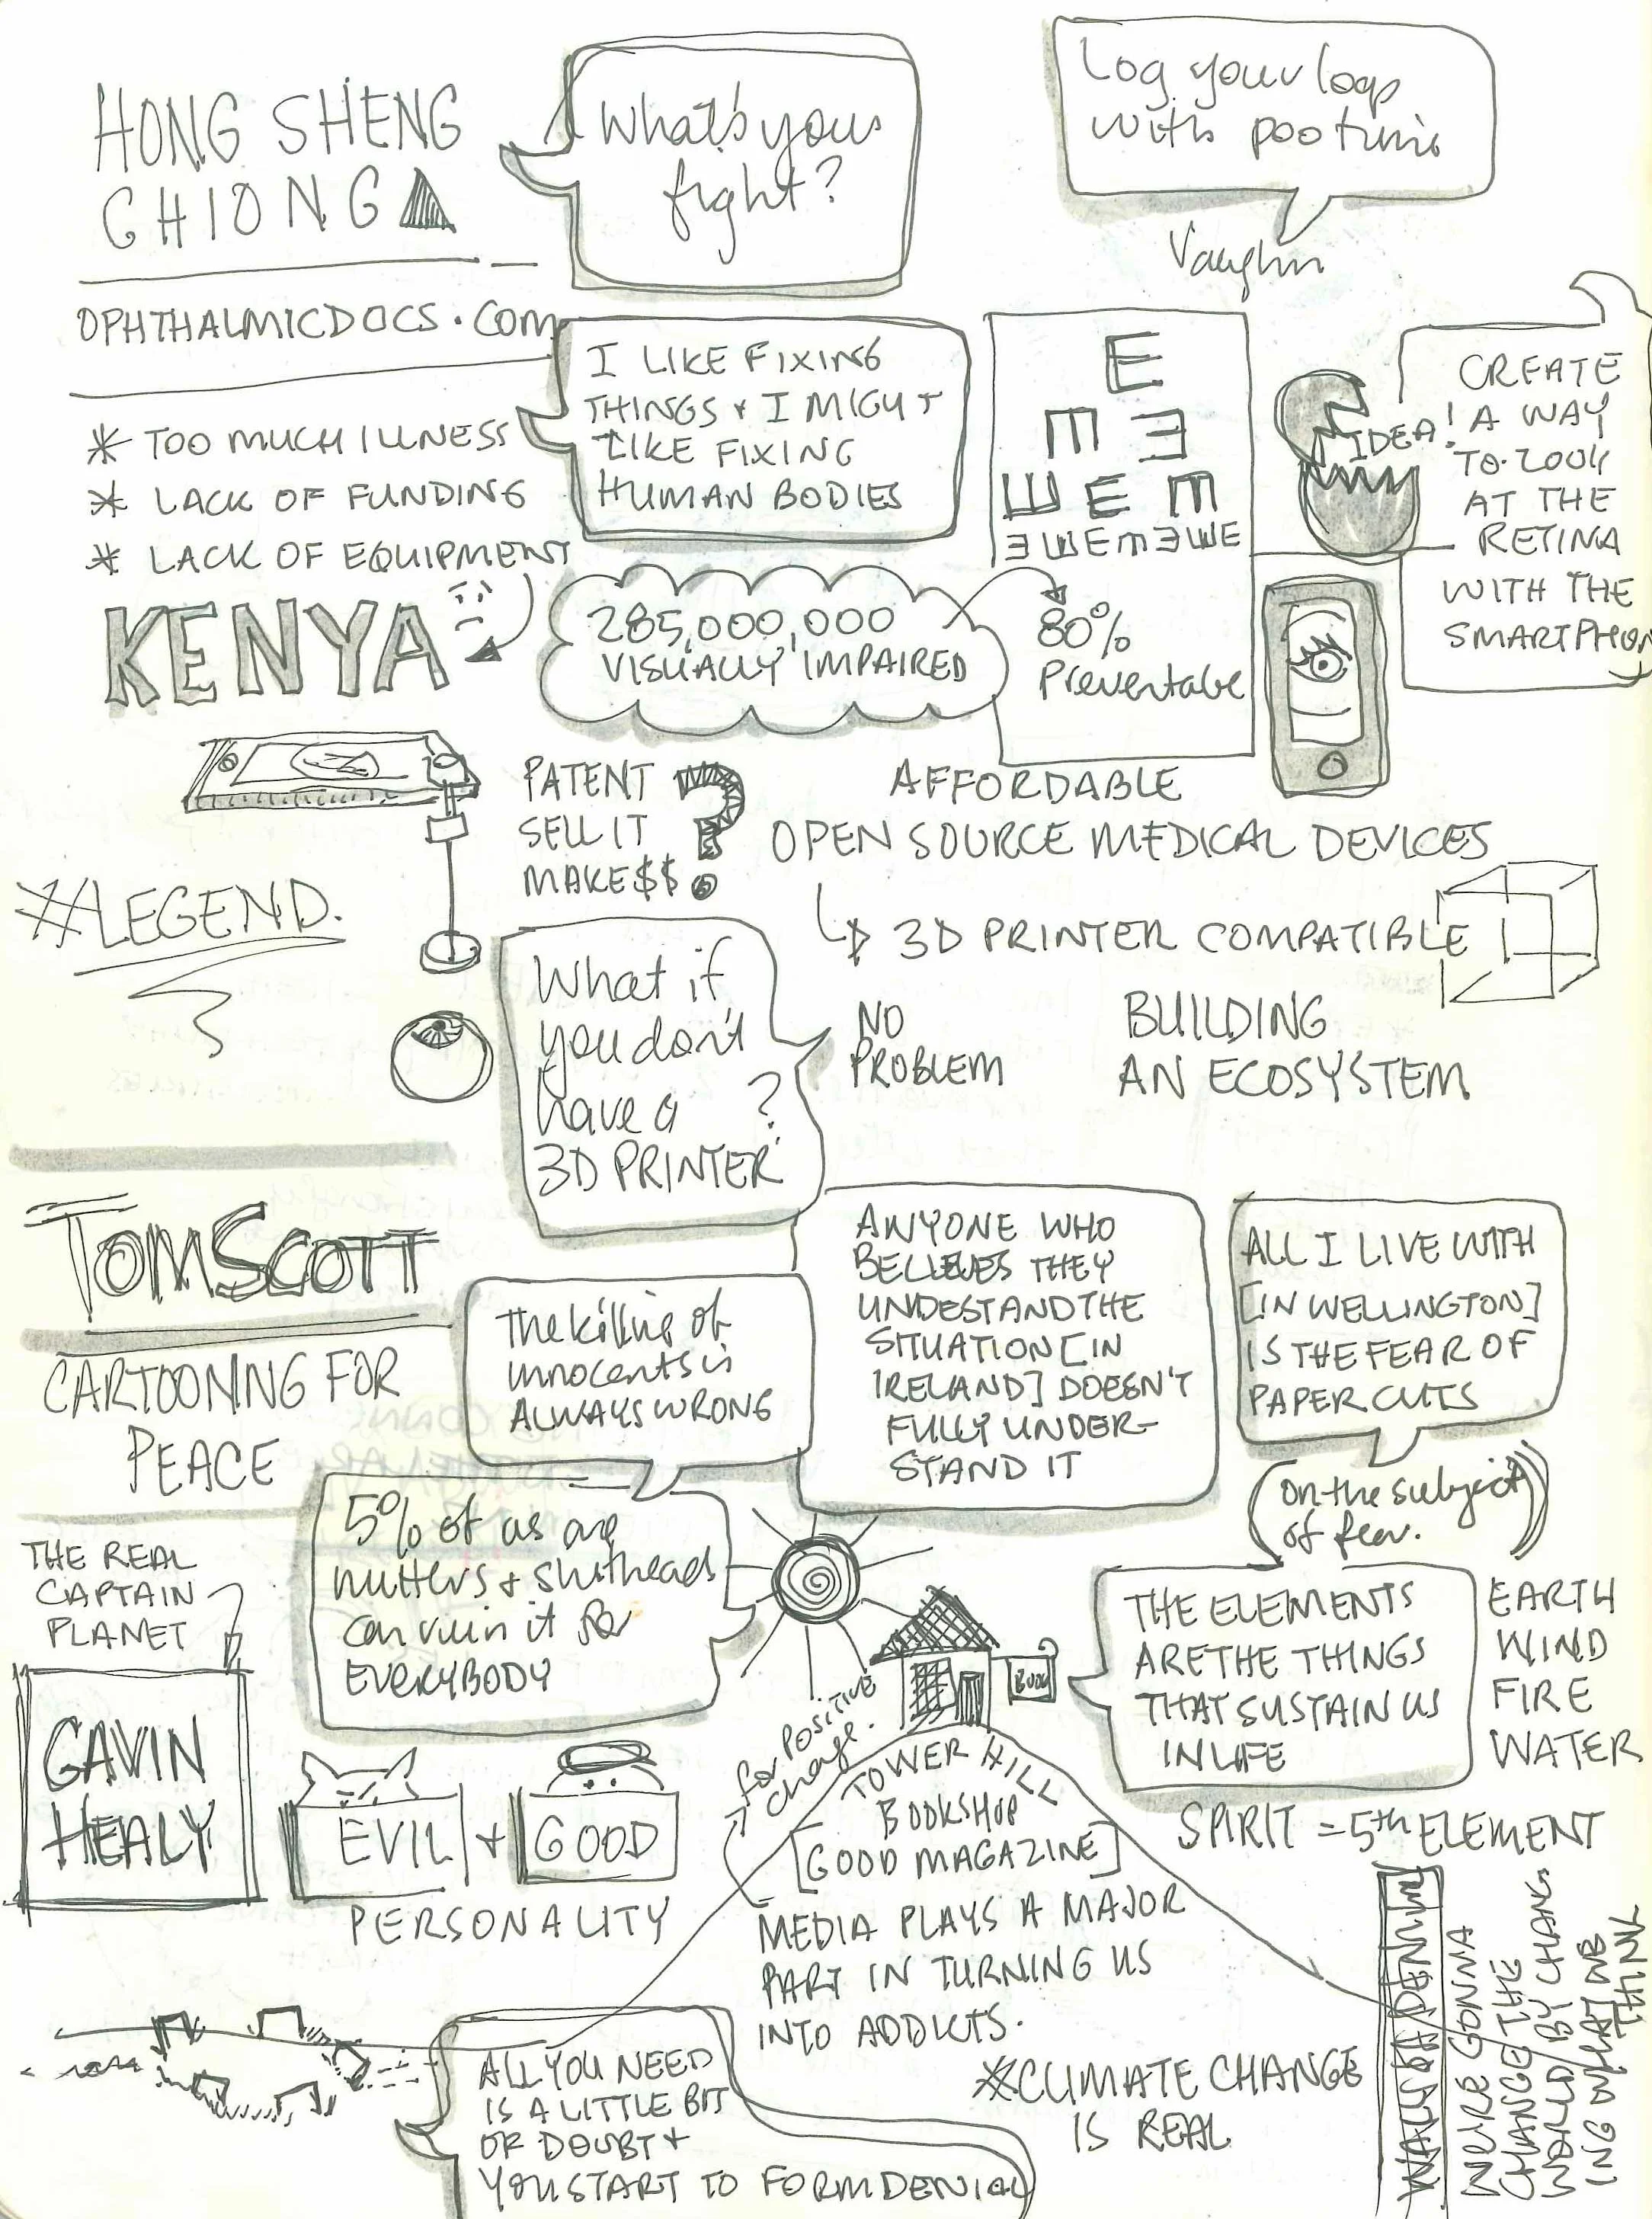 HONG SHENG
CHIONG
OPHTHALMICDOCS.COM
What's your
fight?
Log your logs
with pootunia
Vaughn
* TOO MUCH ILLNESS
* LACK OF FUNDING
* LACK OF EQUIPMENT
KENYA
I LIKE FIXING
THINGS + I MIGHT
LIKE FIXING
HUMAN BODIES
285,000,000
VISUALLY IMPAIRED
E
E E
E E E
E E E E E E E
80%
Preventable
IDEA!
CREATE
A WAY
TO LOOK
AT THE
RETINA
WITH THE
SMARTPHON
PATENT
SELL IT
MAKE $$
?
AFFORDABLE
OPEN SOURCE MEDICAL DEVICES
3D PRINTER COMPATIBLE
#LEGEND.
What if
you don't
have a ?
3D PRINTER
NO
PROBLEM
BUILDING
AN ECOSYSTEM
TOM SCOTT
CARTOONING FOR
PEACE
The killing of
innocents is
ALWAYS WRONG
ANYONE WHO
BELIEVES THEY
UNDESTAND THE
SITUATION [IN
IRELAND] DOESN'T
FULLY UNDER-
STAND IT
ALL I LIVE WITH
[IN WELLINGTON]
IS THE FEAR OF
PAPER CUTS
(on the subject
of fear.)
5% of us are
nutters + shitheads
can ruin it for
EVERYBODY
THE REAL
CAPTAIN
PLANET
GAVIN
HEALY
EVIL + GOOD
PERSONALITY
BOOK
for positive
change.
TOWER HILL
BOOKSHOP
[GOOD MAGAZINE]
MEDIA PLAYS A MAJOR
PART IN TURNING US
INTO ADDICTS.
THE ELEMENTS
ARE THE THINGS
THAT SUSTAIN US
IN LIFE
EARTH
WIND
FIRE
WATER
SPIRIT = 5th ELEMENT
*CLIMATE CHANGE
IS REAL
ALL YOU NEED
IS A LITTLE BIT
OF DOUBT +
YOU START TO FORM DENIAL
WE'RE GONNA
CHANGE THE
WORLD BY CHANG
ING WHAT WE
THINK